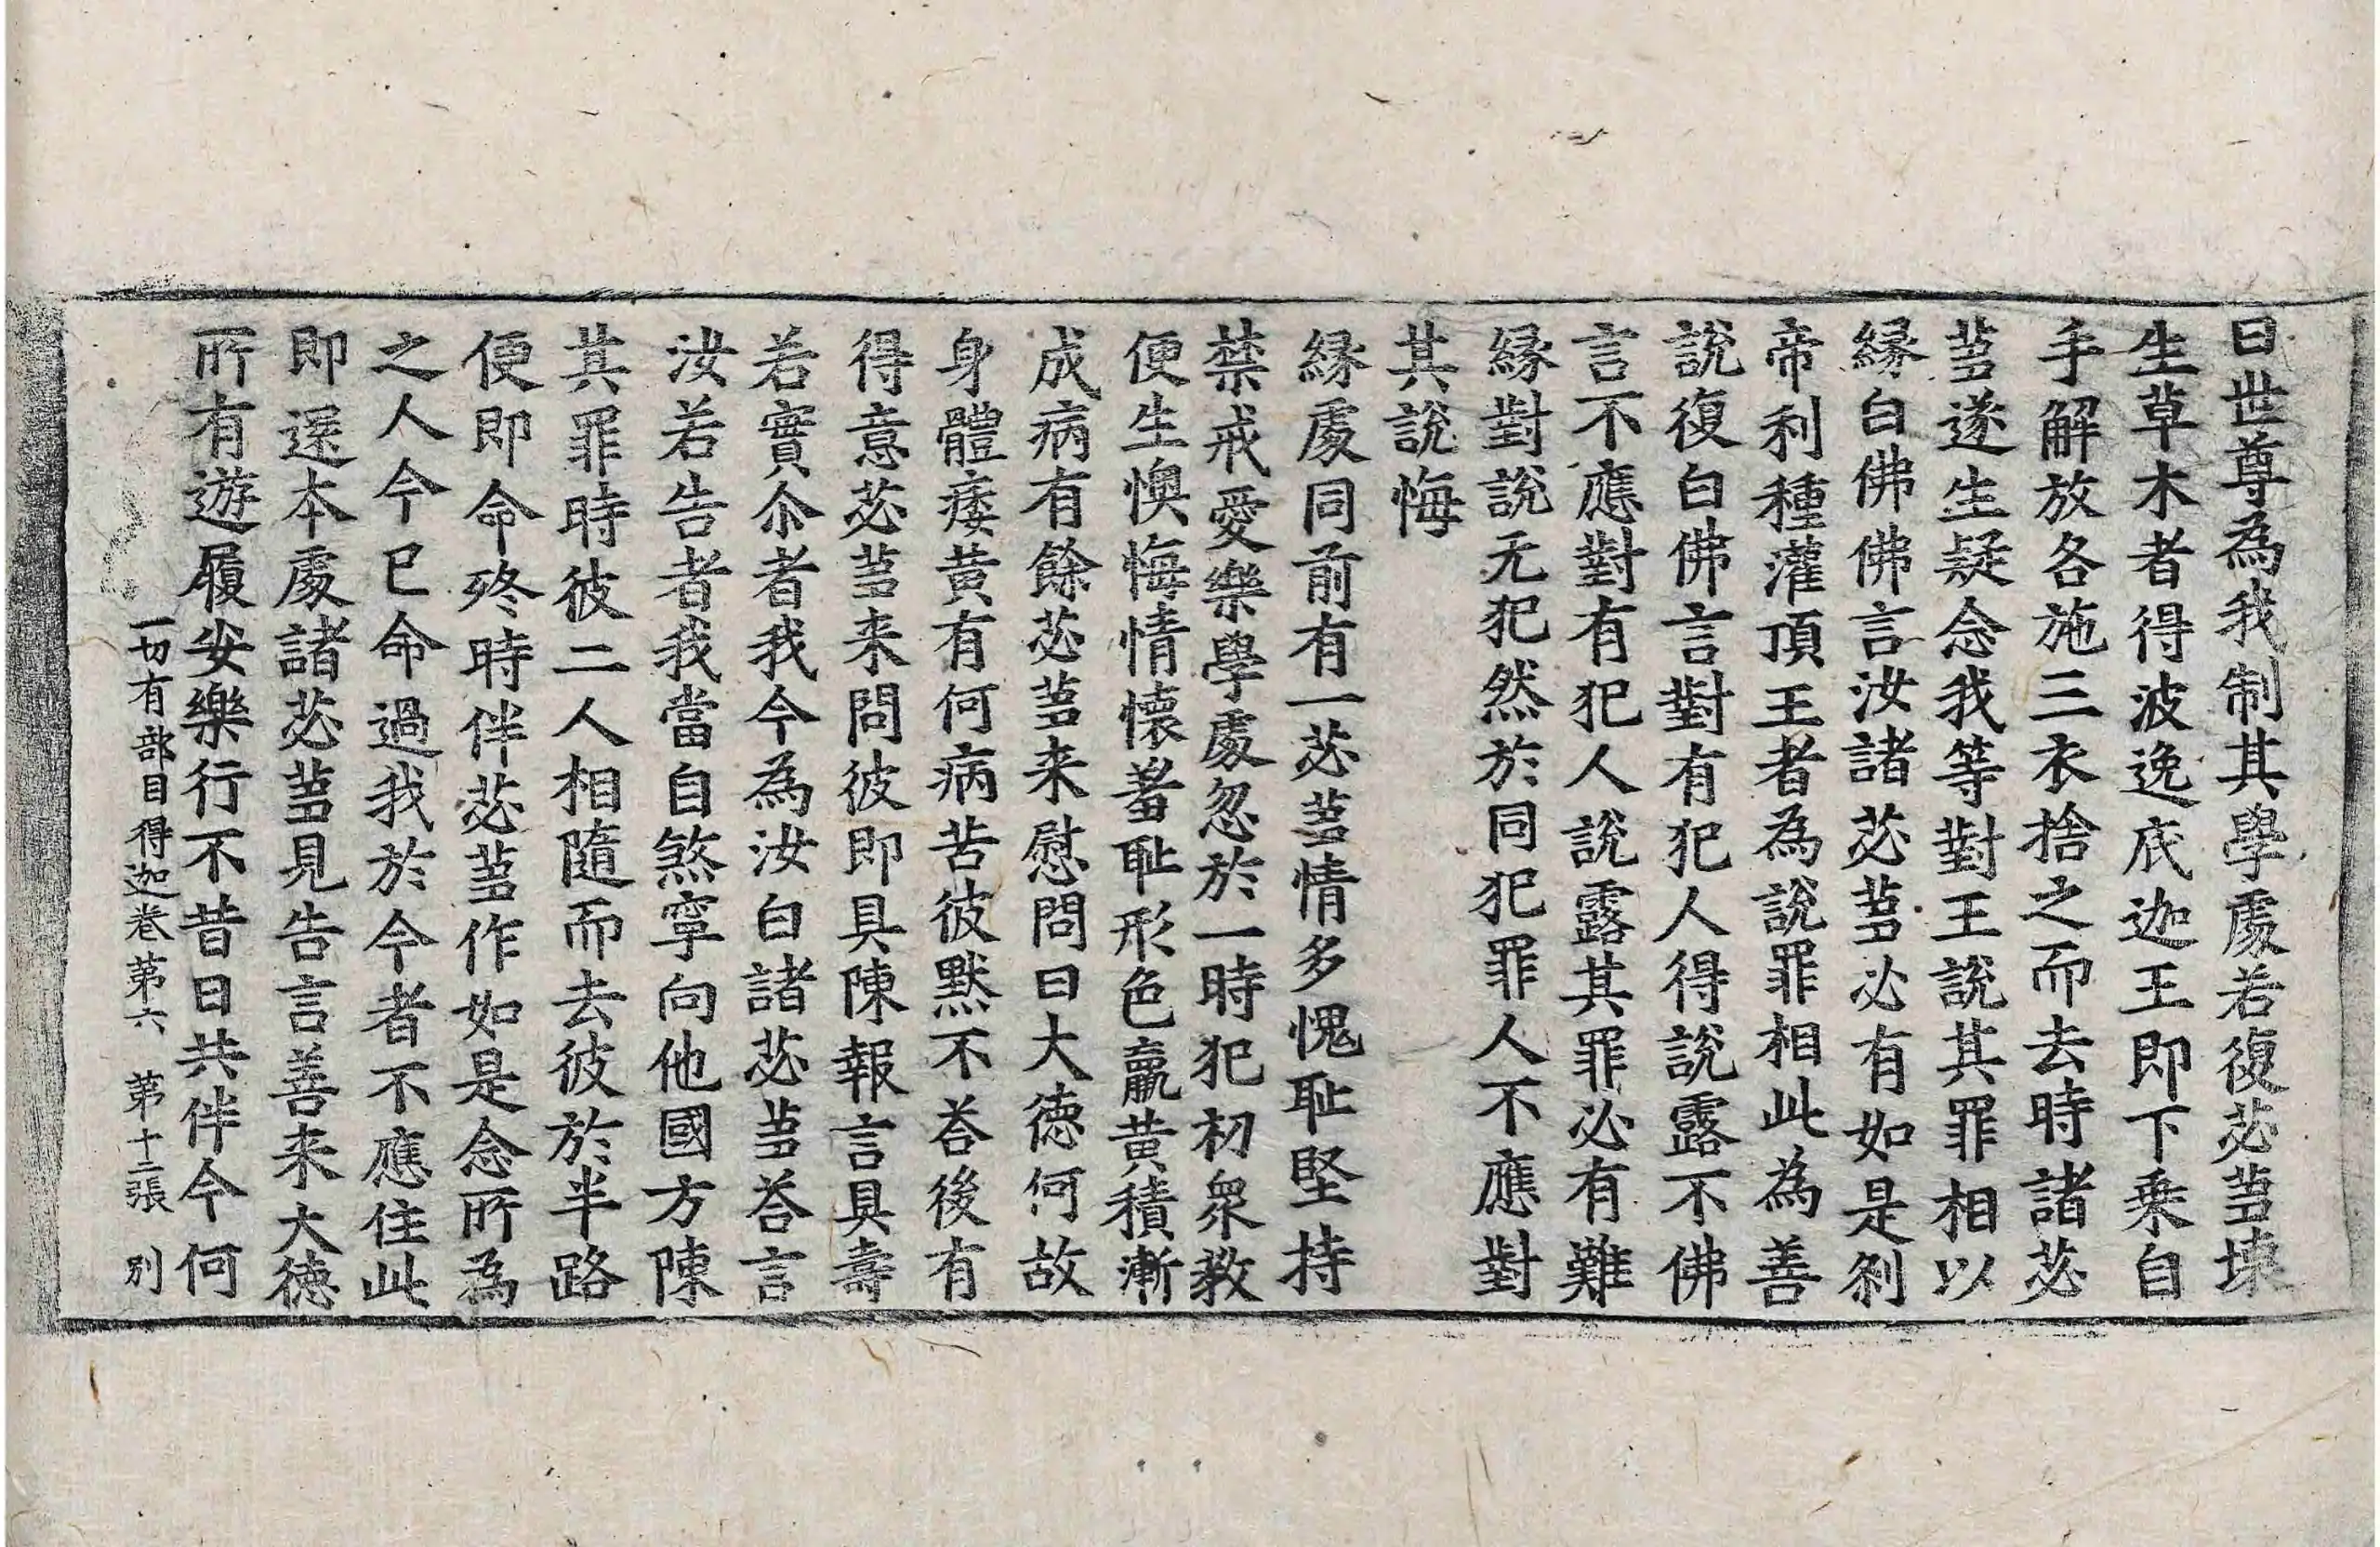 曰世尊為我制其學處若復苾芻壞
生草木者得波逸底迦王即下乗自
手解放各施三衣捨之而去時諸苾
芻遂生疑念我等對王說其罪相以
縁白佛佛言汝諸苾芻必有如是刹
帝利種灌頂王者為說罪相此為善
說復白佛言對有犯人得說露不佛
言不應對有犯人說露其罪必有難
縁對說无犯然於同犯罪人不應對
其說悔
縁處同前有一苾芻情多愧恥堅持
禁戒愛樂學處忽於一時犯初衆教
便生懊悔情懷羞恥形色羸黃積漸
成病有餘苾芻来慰問曰大德何故
身體痿黃有何病苦彼默不荅後有
得意苾芻来問彼即具陳報言具壽
若實尒者我今為汝白諸苾芻荅言
汝若告者我當自煞寧向他國方陳
其罪時彼二人相隨而去彼於半路
便即命終時伴苾芻作如是念所為
之人今已命過我於今者不應住此
即還本處諸苾芻見告言善来大德
所有遊履安樂行不昔日共伴今何
一切有部目得迦卷第六 第十二張 別